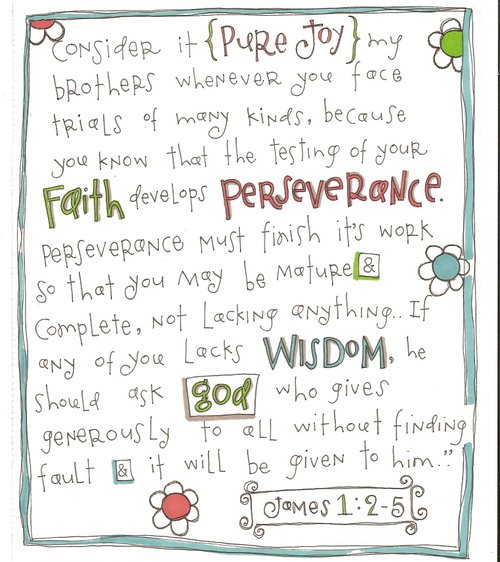 Consider it {Pure Joy} my
brothers whenever you face
trials of many kinds, because
you know that the testing of your
Faith develops Perseverance.
Perseverance must finish it's work
so that you may be mature &
complete, not lacking anything.. If
any of you lacks WISDOM, he
should ask god who gives
generously to all without finding
fault & it will be given to him.."
James 1:2-5